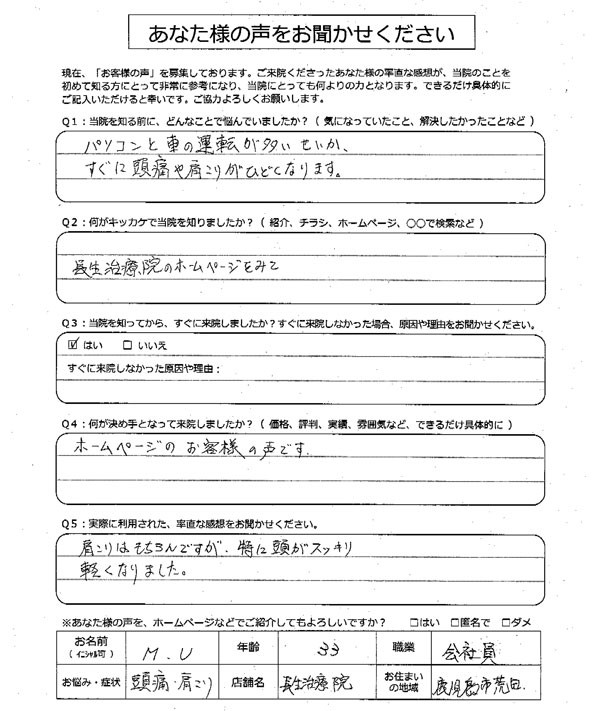 あなた様の声をお聞かせください
現在、「お客様の声」を募集しております。ご来院くださったあなた様の率直な感想が、当院のことを
初めて知る方にとって非常に参考になり、当院にとっても何よりの力となります。できるだけ具体的に
ご記入いただけると幸いです。ご協力よろしくお願いします。
Q1：当院を知る前に、どんなことで悩んでいましたか？（ 気になっていたこと、解決したかったことなど ）
パソコンと車の運転が多いせいか、
すぐに頭痛や肩こりがひどくなります。
Q2：何がキッカケで当院を知りましたか？（ 紹介、チラシ、ホームページ、〇〇で検索など ）
長生治療院のホームページをみて
Q3：当院を知ってから、すぐに来院しましたか？すぐに来院しなかった場合、原因や理由をお聞かせください。
☑ はい　□ いいえ
すぐに来院しなかった原因や理由：
Q4：何が決め手となって来院しましたか？（ 価格、評判、実績、雰囲気など、できるだけ具体的に ）
ホームページのお客様の声です.
Q5：実際に利用された、率直な感想をお聞かせください。
肩こりはもちろんですが、特に頭がスッキリ
軽くなりました。
※あなた様の声を、ホームページなどでご紹介してもよろしいですか？　□はい　□匿名で　□ダメ
お名前（ イニシャル可 ）　M.U　年齢　33　職業　会社員
お悩み・症状　頭痛・肩こり　店舗名　長生治療院　お住まいの地域　鹿児島市荒田